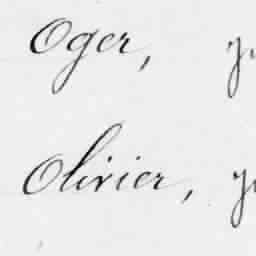 Oger,
Olivier,